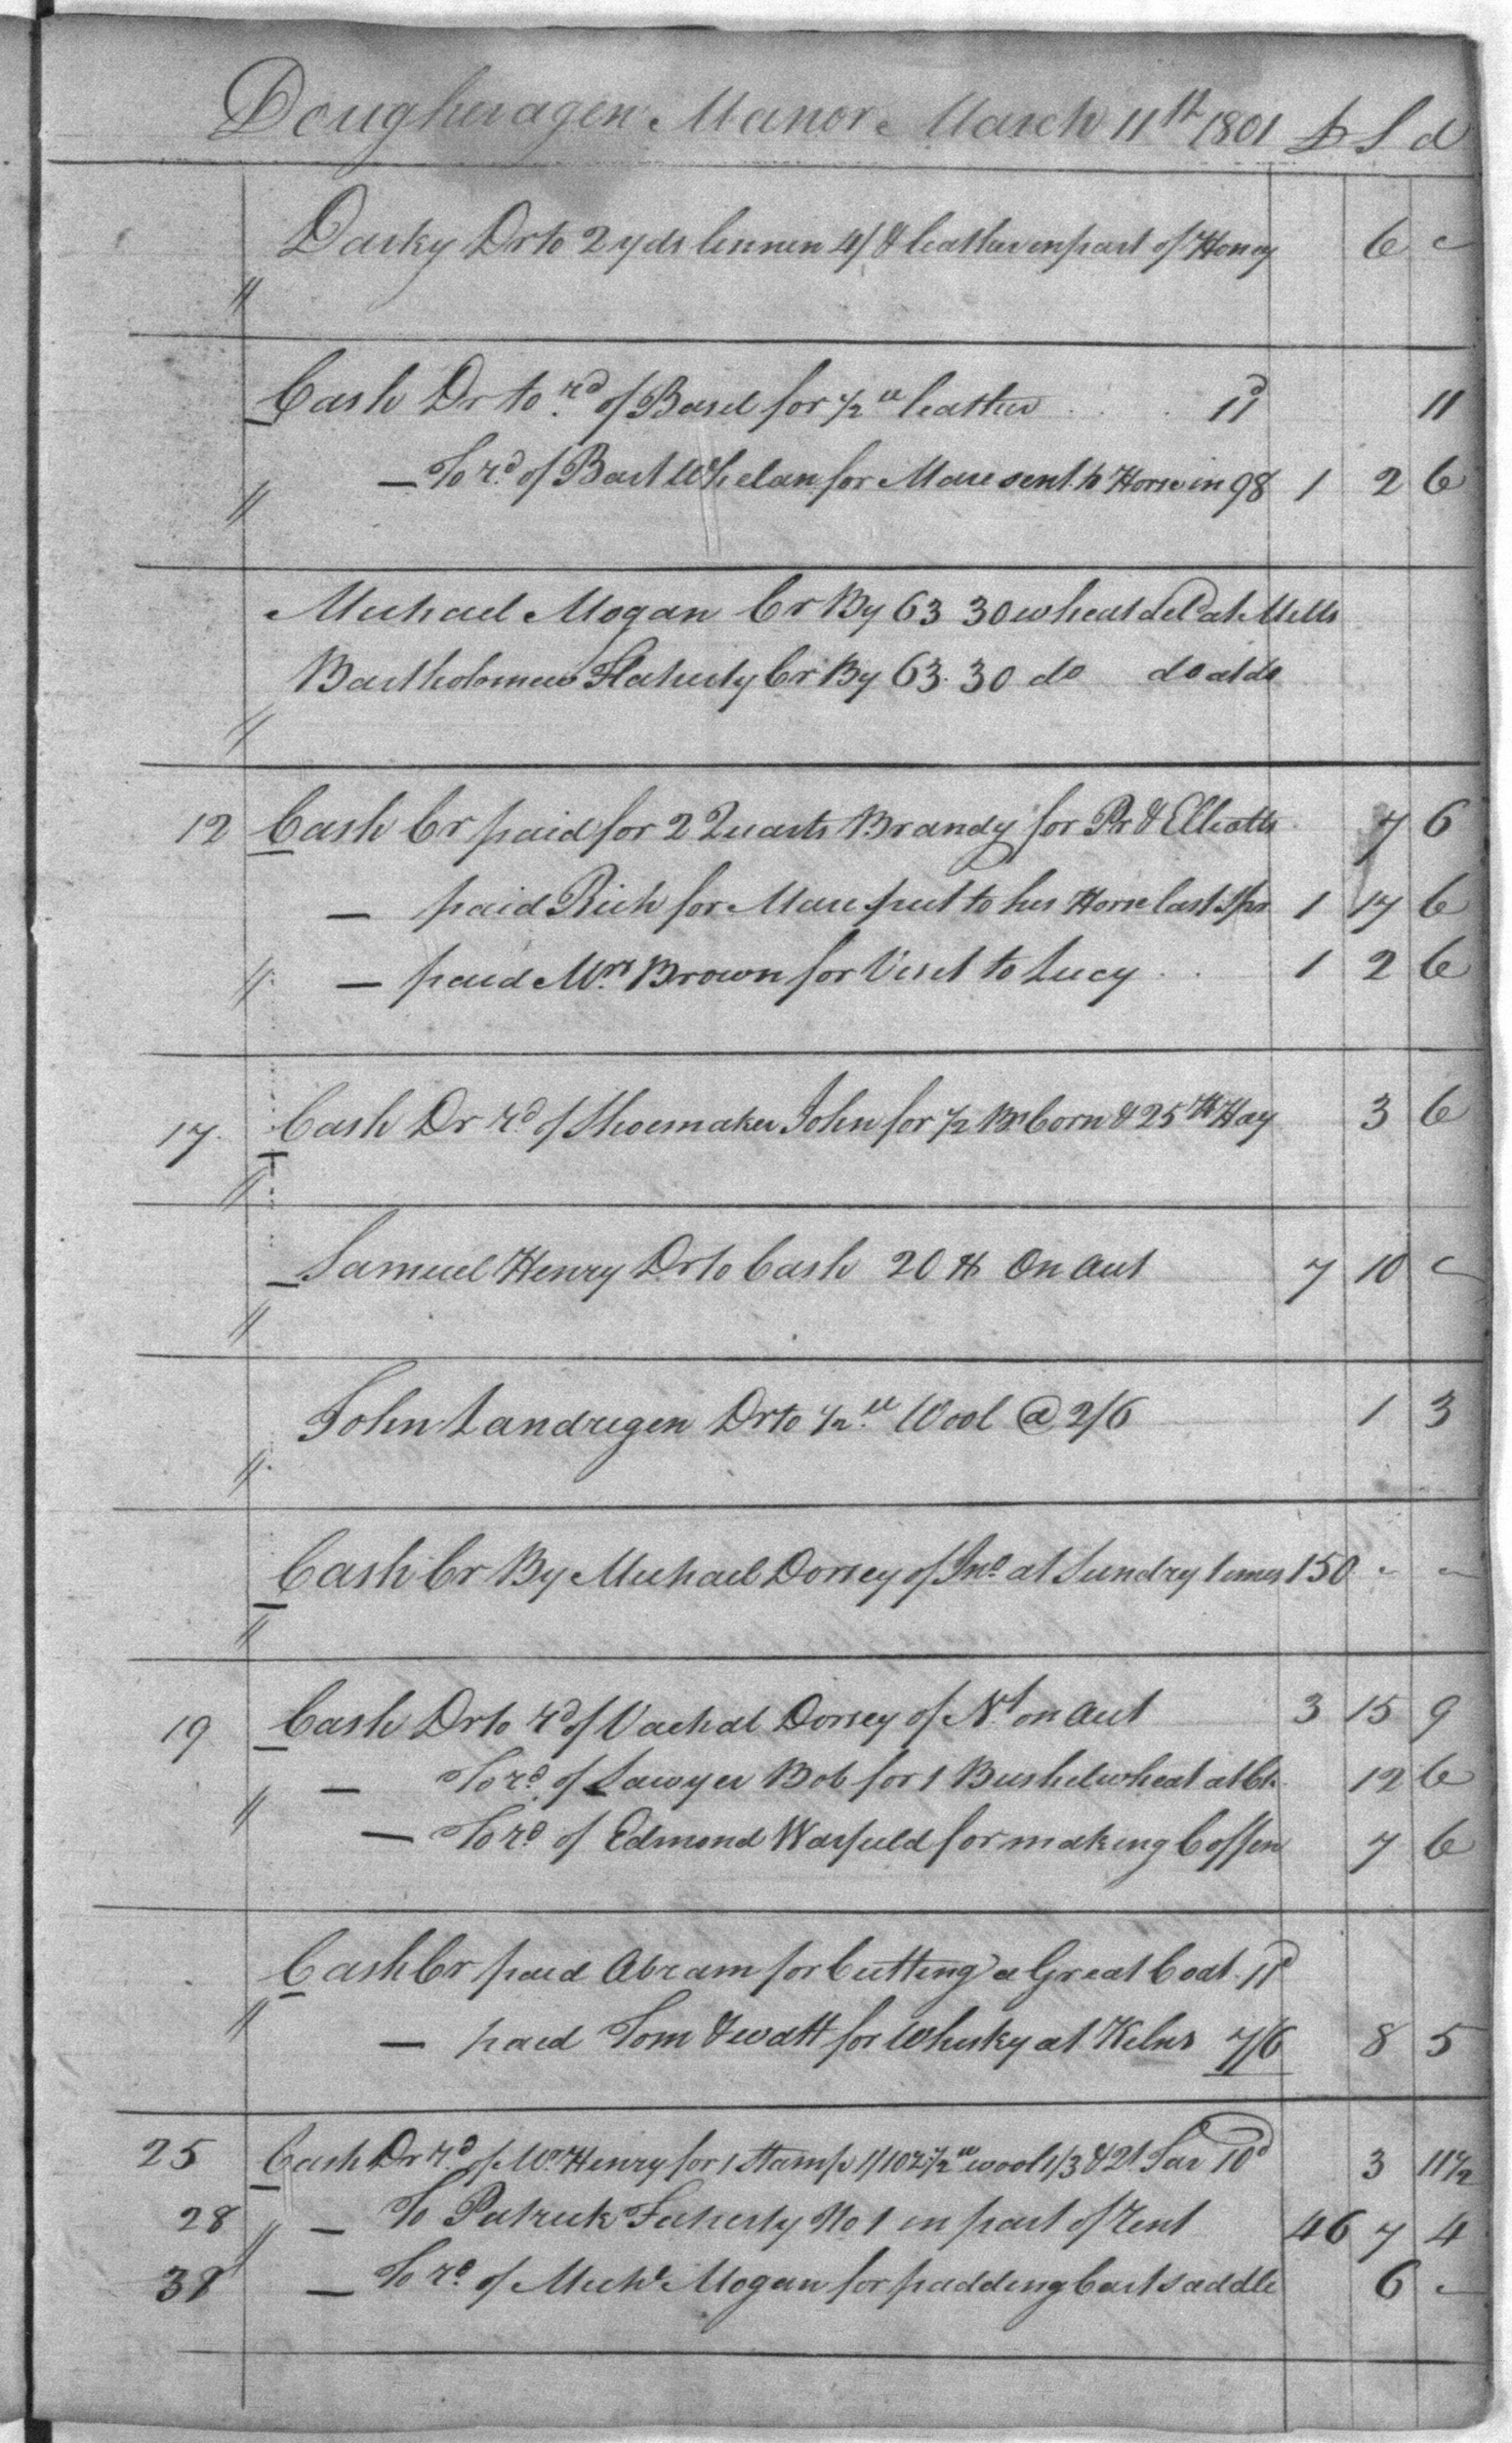 Dougheragen Manor March 11th 1801 £ S d
Darky Dr to 2 yds linnen 4/ & leather in part of Honey 6 "
Cash Dr to rd of Basil for 1/2 lb leather . . . 11d 11
— To rd of Bart Whelan for Mare sent to Horse in 98 1 2 6
Michael Mogan Cr By 63 30 wheat deld at Mills
Bartholomew Flaherty Cr By 63. 30 do do at do
12 Cash Cr paid for 2 Quarts Brandy for Pr & Elliotts 7 6
— paid Rich for Mare put to his Horse last Spr 1 17 6
— paid Mrs Brown for Visit to Lucy . . 1 2 6
17 Cash Dr rd of Shoemaker John for 1/2 Bl Corn & 25 lb Hay 3 6
Samuel Henry Dr to Cash 20 $ On Acct 7 10 "
John Landrigen Dr to 1/2 lb Wool @ 2/6 1 3
Cash Cr By Michael Dorsey of Jno at Sundry times 150 " "
19 Cash Dr to rd of Vachal Dorsey of Nt on Acct 3 15 9
— To rd of Sawyer Bob for 1 Bushel wheat 12 6
— To rd of Edmond Warfield for making Coffin 7 6
Cash Cr paid Abram for Cutting a Great Coat 11d
— paid Tom & Watt for Whisky at Kilns 7/6 8 5
25 Cash Dr rd of Mr Henry for 1 Stamp wool 1/3 & 2 Tar 10d 3 11 1/2
28 — To Patrick Faherty No 1 in part of Rent 46 7 4
— To rd of Michl Mogan for padding Cart saddle 6 "